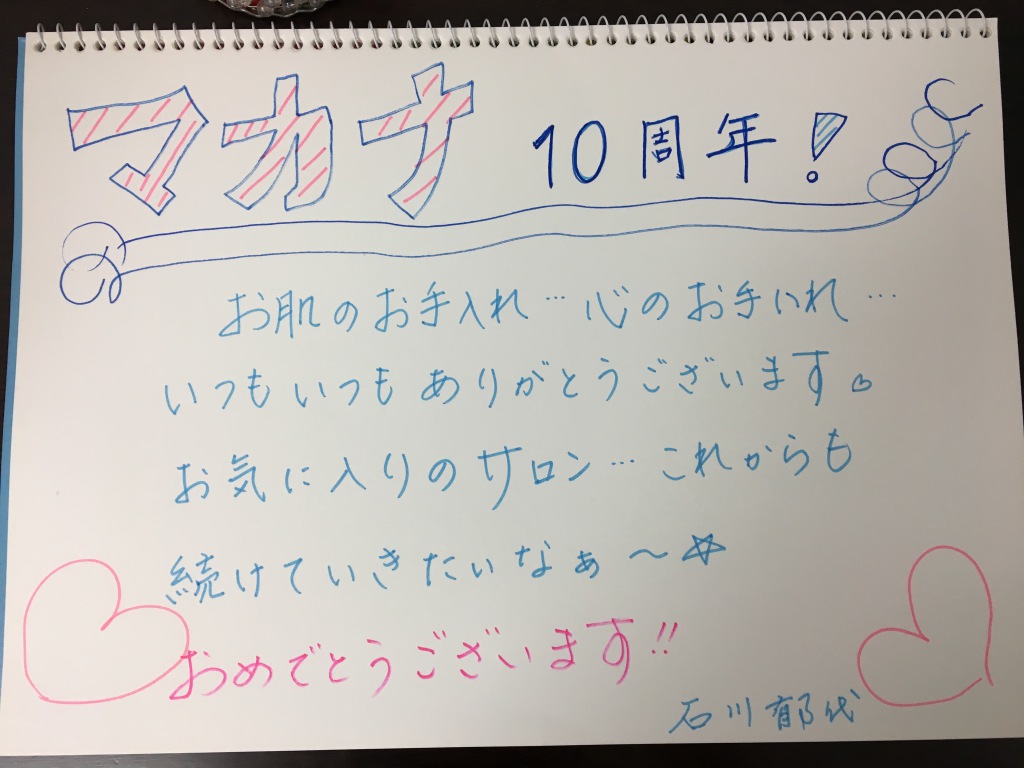 マカナ 10周年!
お肌のお手入れ…心のお手いれ…
いつもいつもありがとうございます♡
お気に入りのサロン…これからも
続けていきたいなぁ～☆
おめでとうございます!!
石川郁代